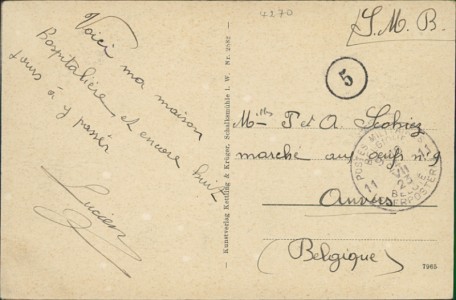 4270
(S.M.B.)
Voici ma maison
hospitalière et encore huit
jours à y passer
Lucien
5
Melles T et A.
marché aux oeufs n° 9
Anvers
(Belgique)
POSTES MILITAIRES
BELGIE
11 VII 23 11
Kunstverlag Kettling & Krüger, Schalksmühle i. W. Nr. 2882
7965